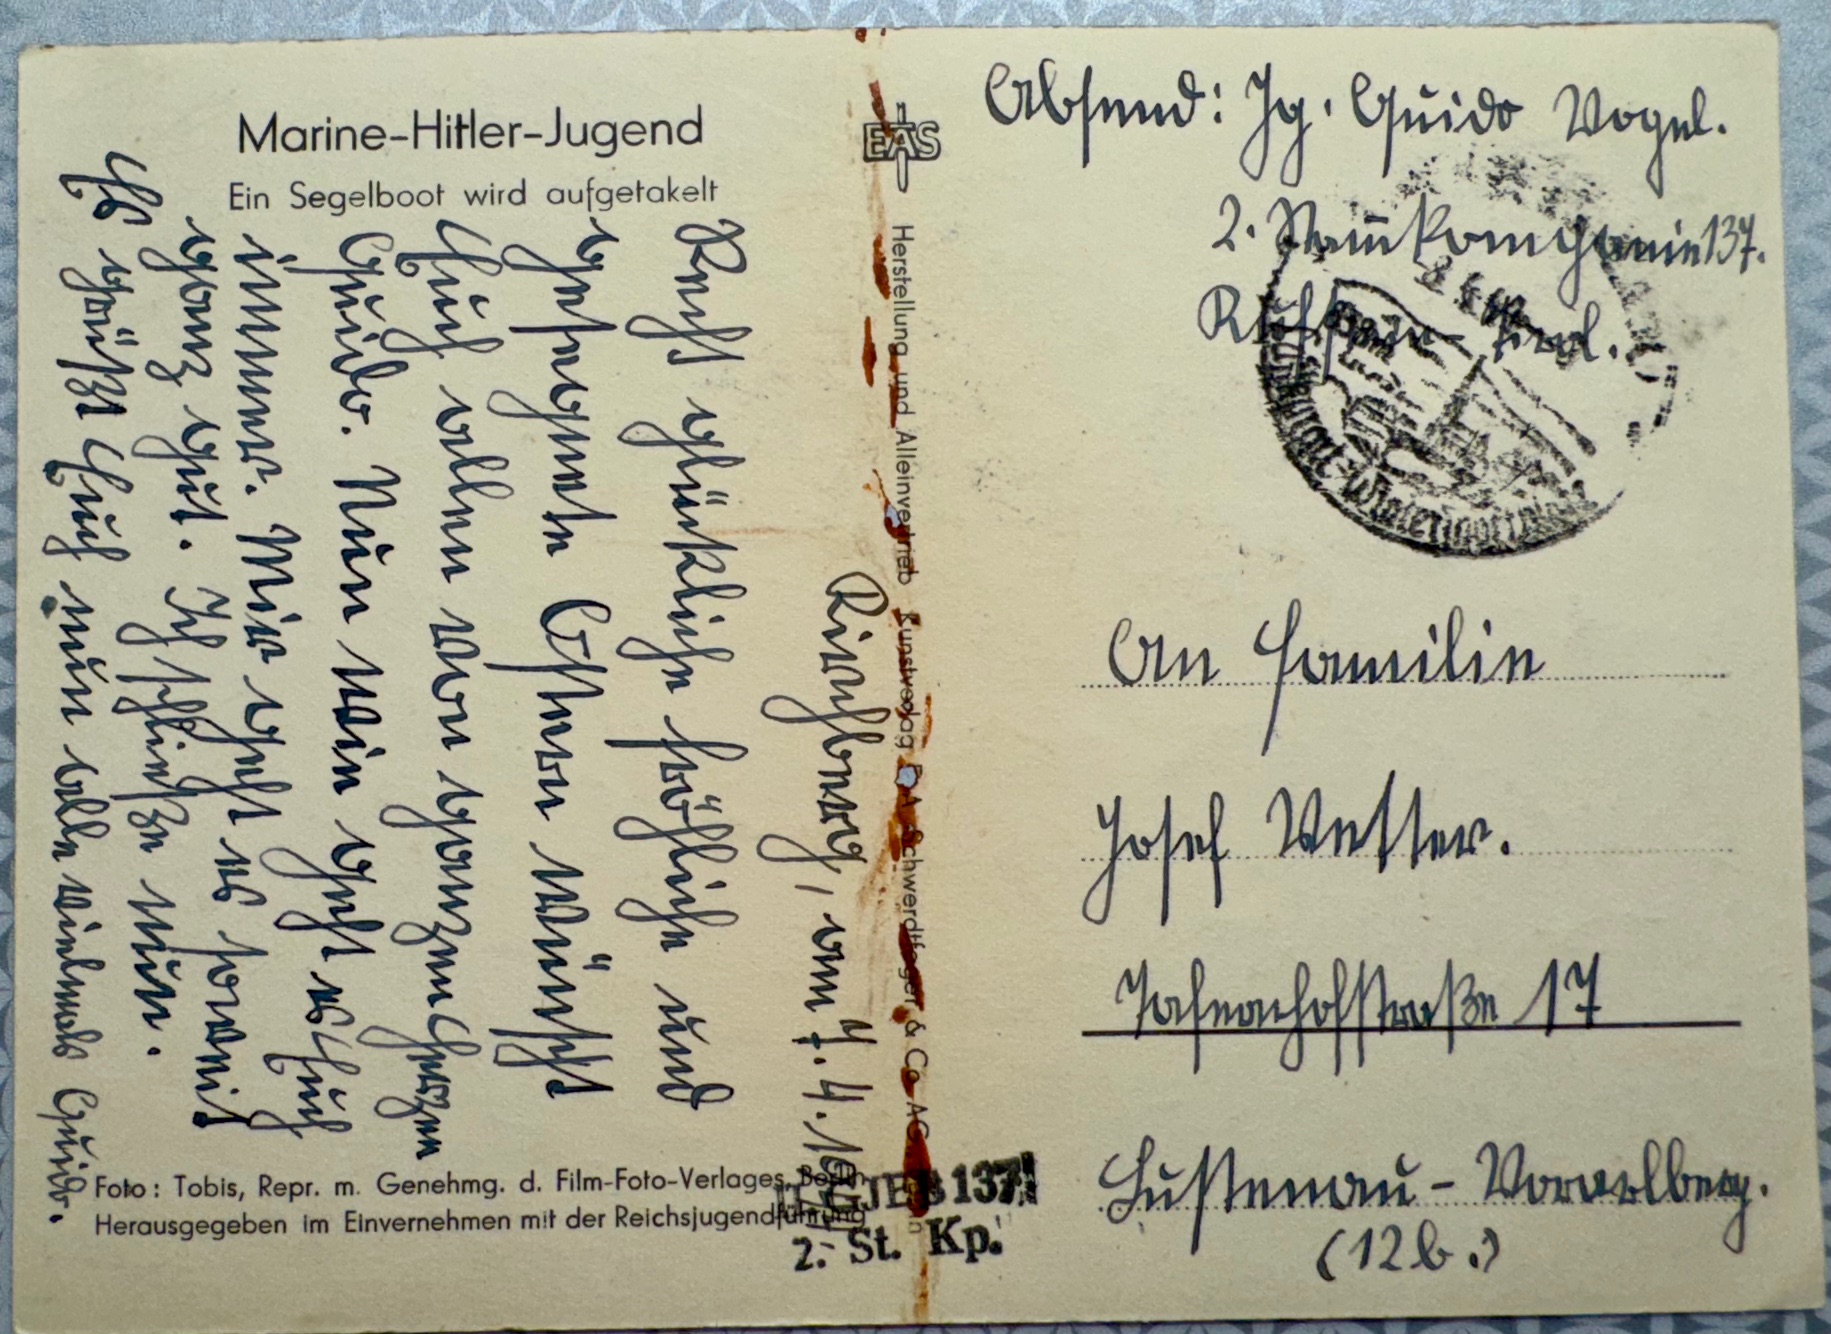 Marine-Hitler-Jugend
Ein Segelboot wird aufgetakelt
Kirchberg, am 7. 4.
Recht glückliche fröhliche und
gesegnete Ostern wünscht
Euch allen von ganzem Herzen
Guido. Nun wie geht es Euch
immer. Mir geht es soweit
ganz gut. Ich schließe nun.
Es grüßt Euch nun alle vielmals Guido.
Foto: Tobis, Repr. m. Genehmg. d. Film-Foto-Verlages, Berlin
Herausgegeben im Einvernehmen mit der Reichsjugendführung
EAS
Herstellung und Alleinvertrieb Kunstverlag E. A. Schwerdtfeger & Co. AG
137
2. St. Kp.
Absend: Jg. Guido Vogel.
2. Stammkompanie 137.
Tirol.
An Familie
Josef Vetter.
17
Lustenau - Vorarlberg.
(12b.)